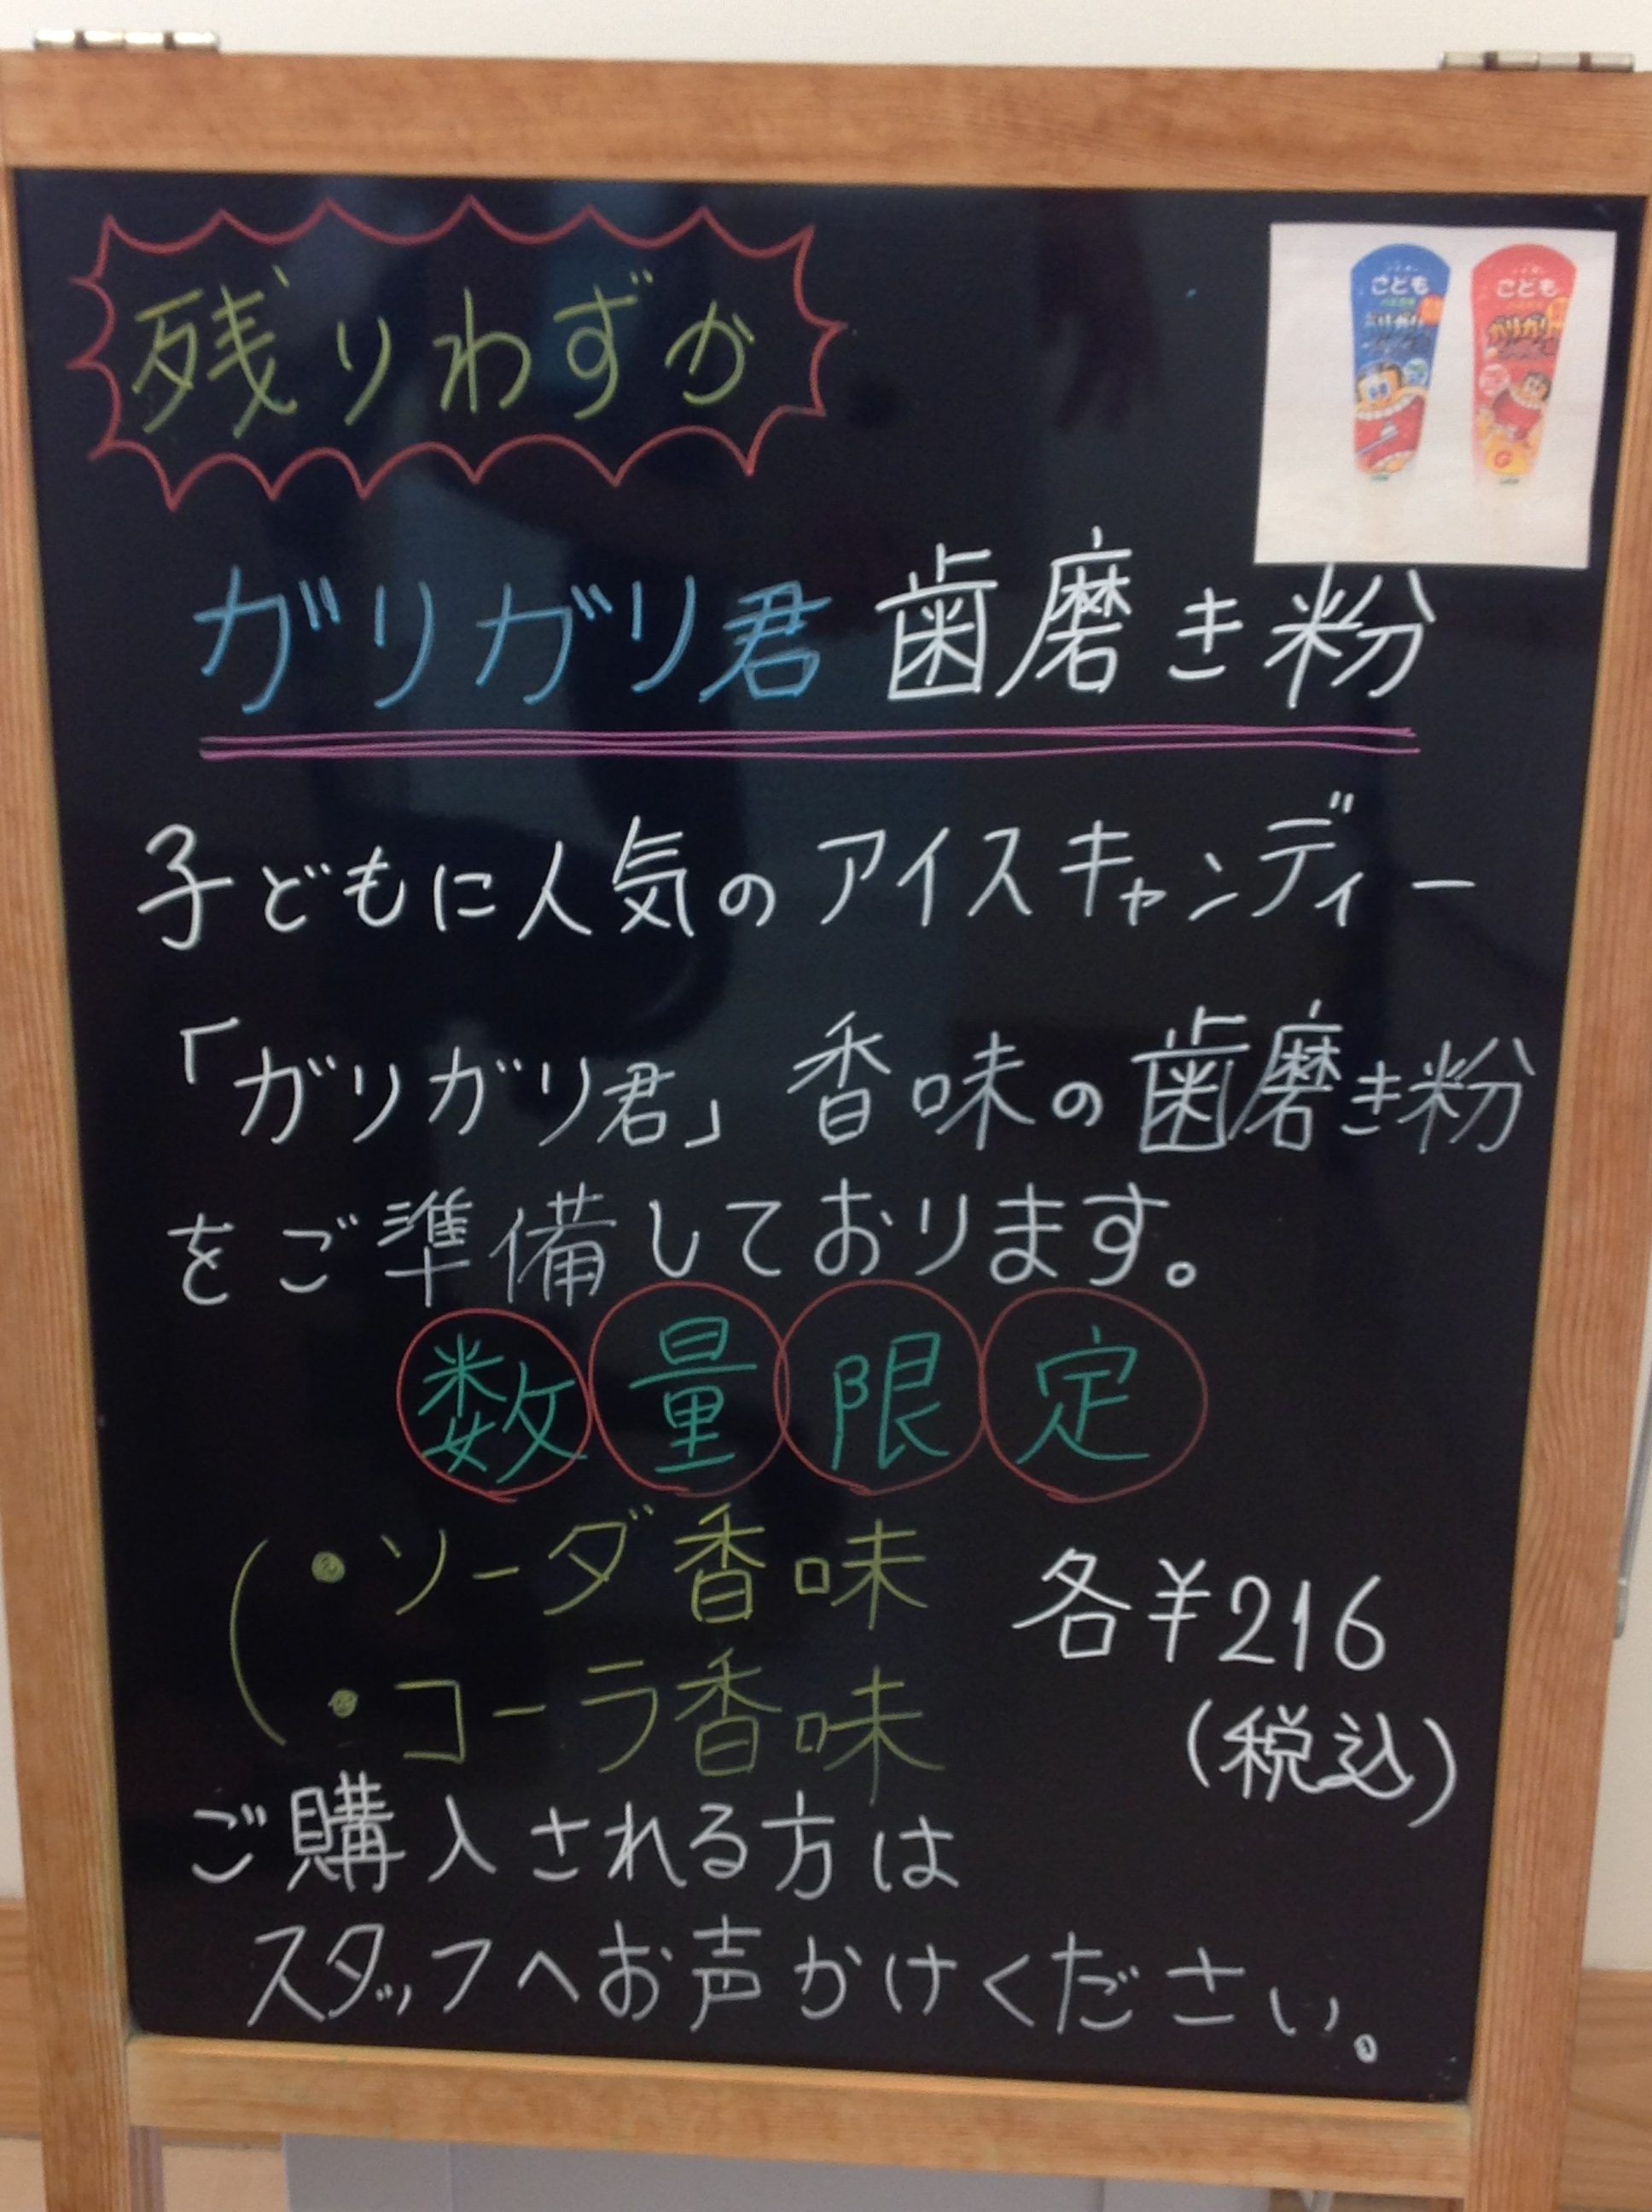 残りわずか
こども
こども
ガリガリ
ガリガリ君 歯磨き粉
子どもに人気のアイスキャンディー
「ガリガリ君」香味の歯磨き粉
をご準備しております。
数量限定
・ソーダ香味
各¥216
・コーラ香味
(税込)
ご購入される方は
スタッフへお声かけください。